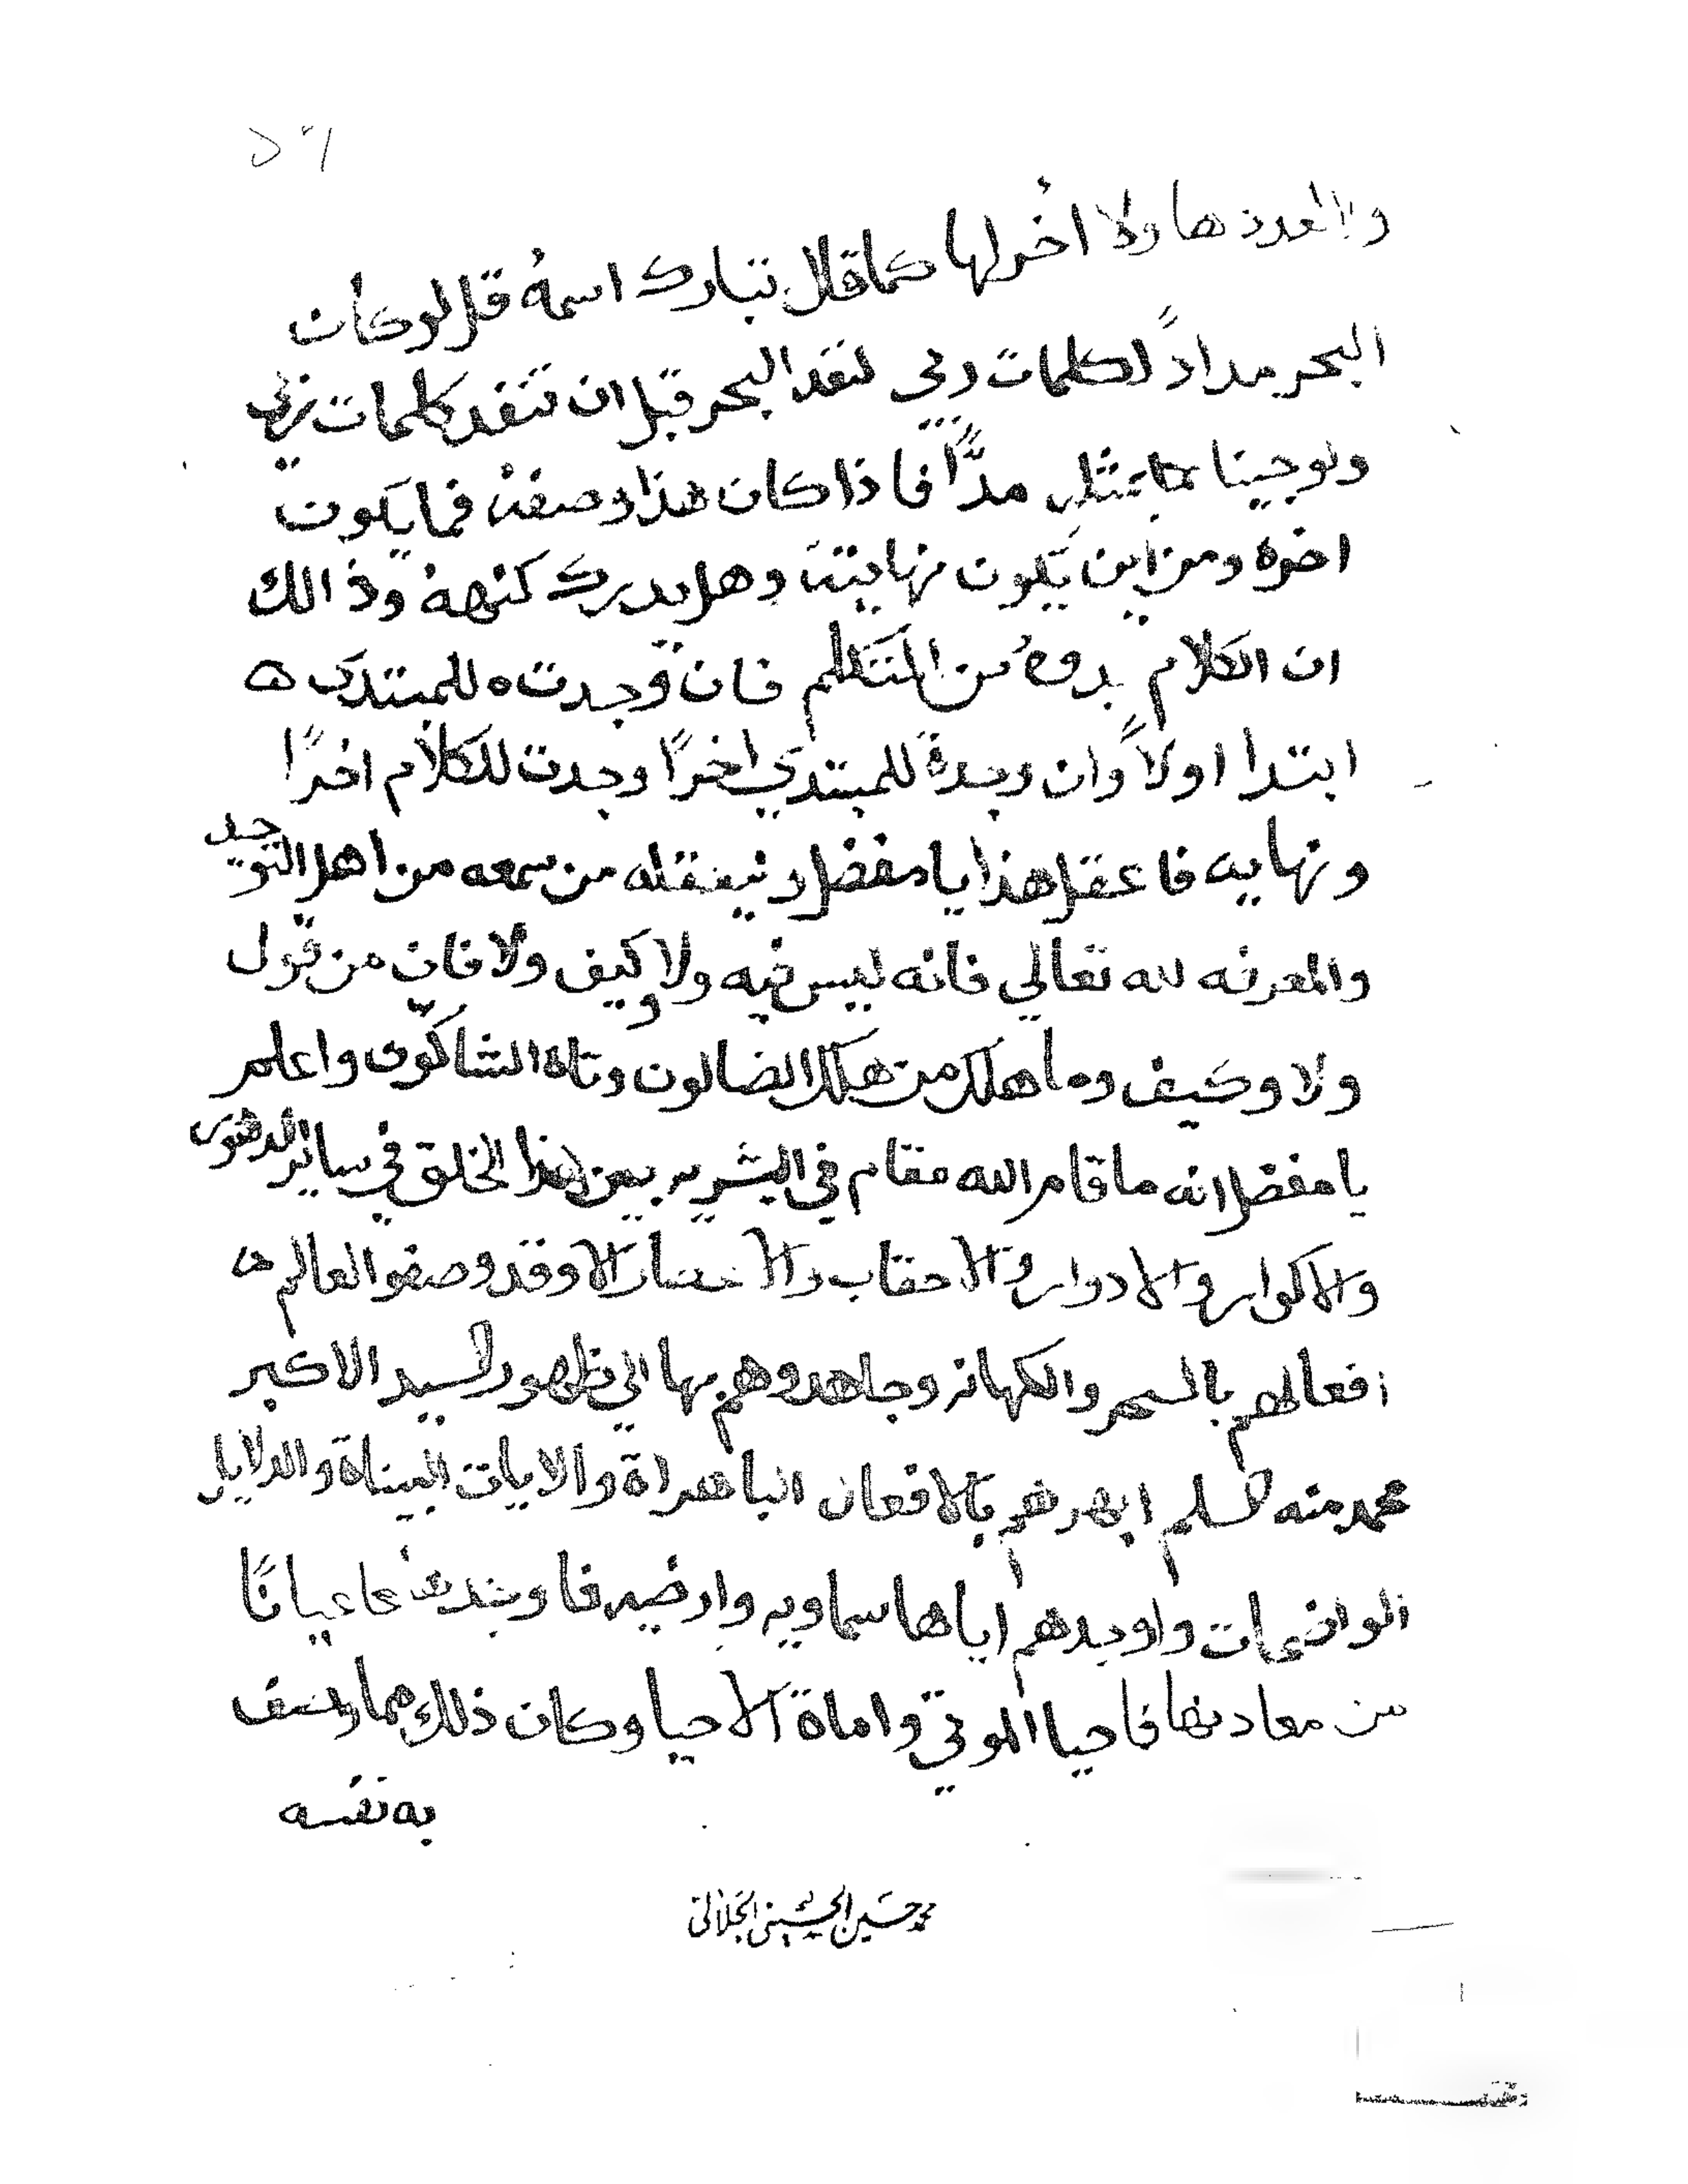 ولا لعددها ولا اخر لها كما قال تبارك اسمهُ قل لو كان
البحر مداداً لكلمات ربي لنفد البحر قبل ان تنفد كلمات ربي
ولو جينا بمثله مدًّا فاذا كان هذا وصفهُ فما يكون
اخره ومن اين يكون نهايته وهل يدرك كنههُ وذالك
ان الكلام بدوهُ من المتكلم فان وجدت ه للمبتدي ه
ابتدا اولاً وان وجدة للمبتدي اخرًا وجدت للكلام اخرًا
ونهايه فاعقل هذا يا مفضل وليعقله من سمعه من اهل التوحيد
والمعرفه لله تعالي فانه ليس فيه ولا وكيف ولا فان من قول
ولا وكيف وما هلك من هلك الضالون وتاه الشاكون واعلم
يا مفضل انه ما قام الله مقام في البشريه بعين هذا الخلق في ساير الدهور
والاكوار والادوار والاحقاب والاعصار الا وقد وصفو العالم ه
افعالهم بالسحر والكهانه وجاهدوهم بها الي ظهور السيد الاكبر
محمد منه السلم ابهرهم بالافعان الباهراة والايات البيناة والدلايل
الواضحات واوجدهم اياها سماويه وارضيه عيانًا
من معادنها فاحيا الموتي واماة الاحيا وكان ذلك مما وصف
به نفسه
محمد حسين الحسيني الجلالي